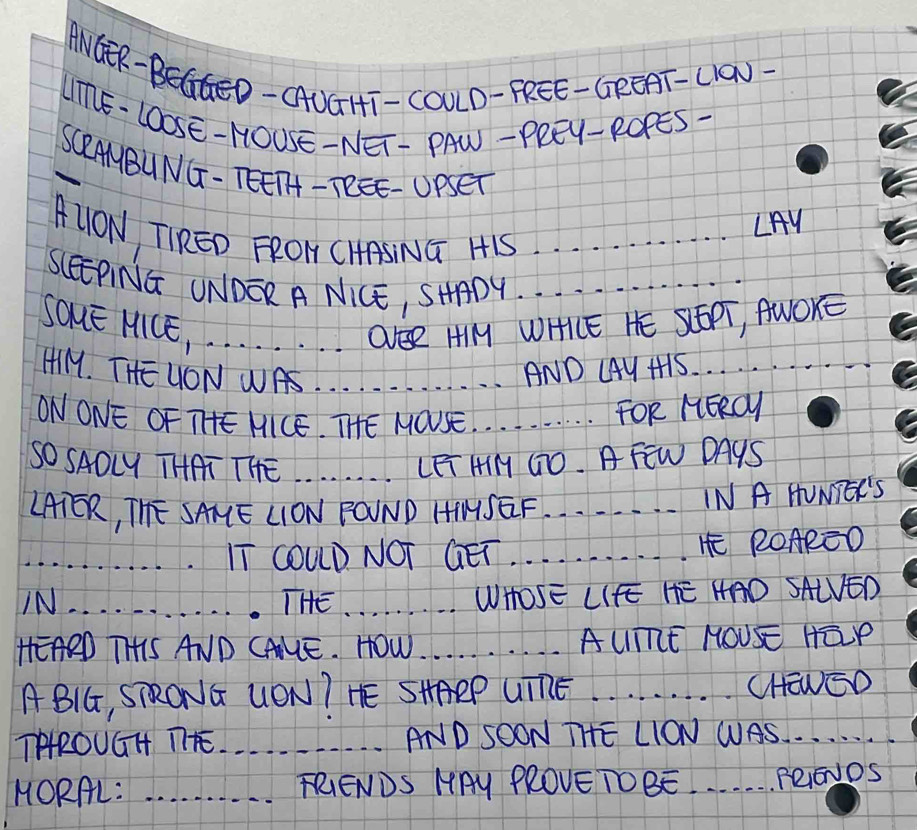 ANGER-BEGGED-CAUGHT-COULD-FREE-GREAT-LION-
LITTLE-LOOSE-MOUSE-NET-PAW-PREY-ROPES-
SCRAMBLING-TEETH-TREE-UPSET
A LION, TIRED FROM CHASING HIS ............ LAY
SLEEPING UNDER A NICE, SHADY .............
SOME MICE, ......... OVER HIM WHILE HE SLEPT, AWOKE
HIM. THE LION WAS ............ AND LAY HIS ...........
ON ONE OF THE MICE. THE MOUSE .......... FOR MERCY
SO SADLY THAT THE ........ LET HIM GO. A FEW DAYS
LATER, THE SAME LION FOUND HIMSELF ......... IN A HUNTER'S
........... IT COULD NOT GET ........... HE ROARED
IN ............ THE ......... WHOSE LIFE HE HAD SALVED
HEARD THIS AND CAME. HOW ........... A LITTLE MOUSE HELP
A BIG, STRONG LION? HE SHARP LITTLE ......... CHEWED
THROUGH THE ............ AND SOON THE LION WAS .......
MORAL: .......... FRIENDS MAY PROVE TO BE ....... FRIENDS